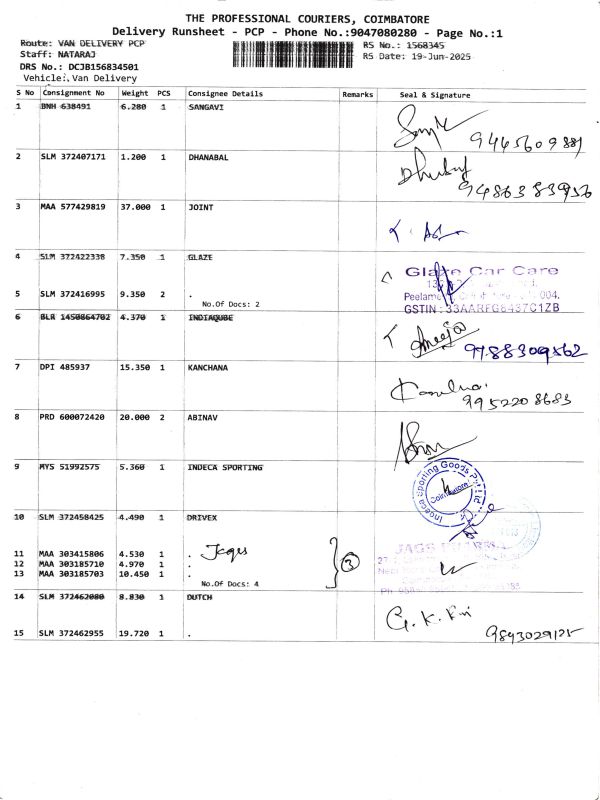 THE PROFESSIONAL COURIERS, COIMBATORE
Delivery Runsheet - PCP - Phone No.:9047080280 - Page No.:1
Route: VAN DELIVERY PCP
RS No.: 1568345
Staff: NATARAJ
RS Date: 19-Jun-2025
DRS No.: DCJB156834501
Vehicle: Van Delivery
S No Consignment No Weight PCS Consignee Details Remarks Seal & Signature
1 BNH 638491 6.280 1 SANGAVI
2 SLM 372407171 1.200 1 DHANABAL
3 MAA 577429819 37.000 1 JOINT
4 SLM 372422338 7.350 1 GLAZE
Glaze Car Care
Peelame 004.
5 SLM 372416995 9.350 2 .
No.Of Docs: 2
GSTIN : 33AARFG8437C1ZB
6 BLR 1450864702 4.370 1 INDIAQUBE
9788309562
7 DPI 485937 15.350 1 KANCHANA
9952208683
8 PRD 600072420 20.000 2 ABINAV
9 MYS 51992575 5.360 1 INDECA SPORTING
Indeca Sporting Goods Pvt Ltd
Coimbatore
10 SLM 372458425 4.490 1 DRIVEX
11 MAA 303415806 4.530 1 .
12 MAA 303185710 4.970 1 .
3
13 MAA 303185703 10.450 1 .
No.Of Docs: 4
14 SLM 372462080 8.830 1 DUTCH
15 SLM 372462955 19.720 1 .
9843029125